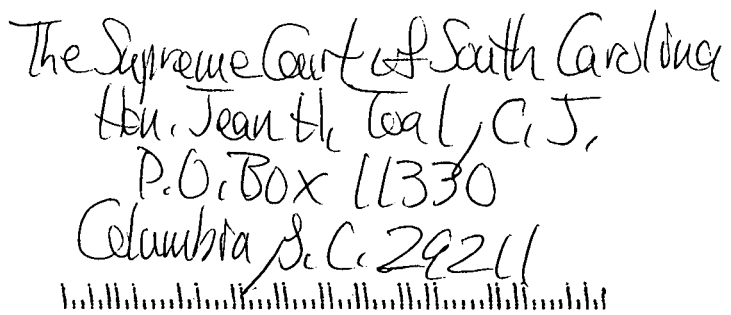 The Supreme Court of South Carolina
Hon. Jean H. Toal, C.J.
P.O. Box 11330
Columbia, S.C. 29211